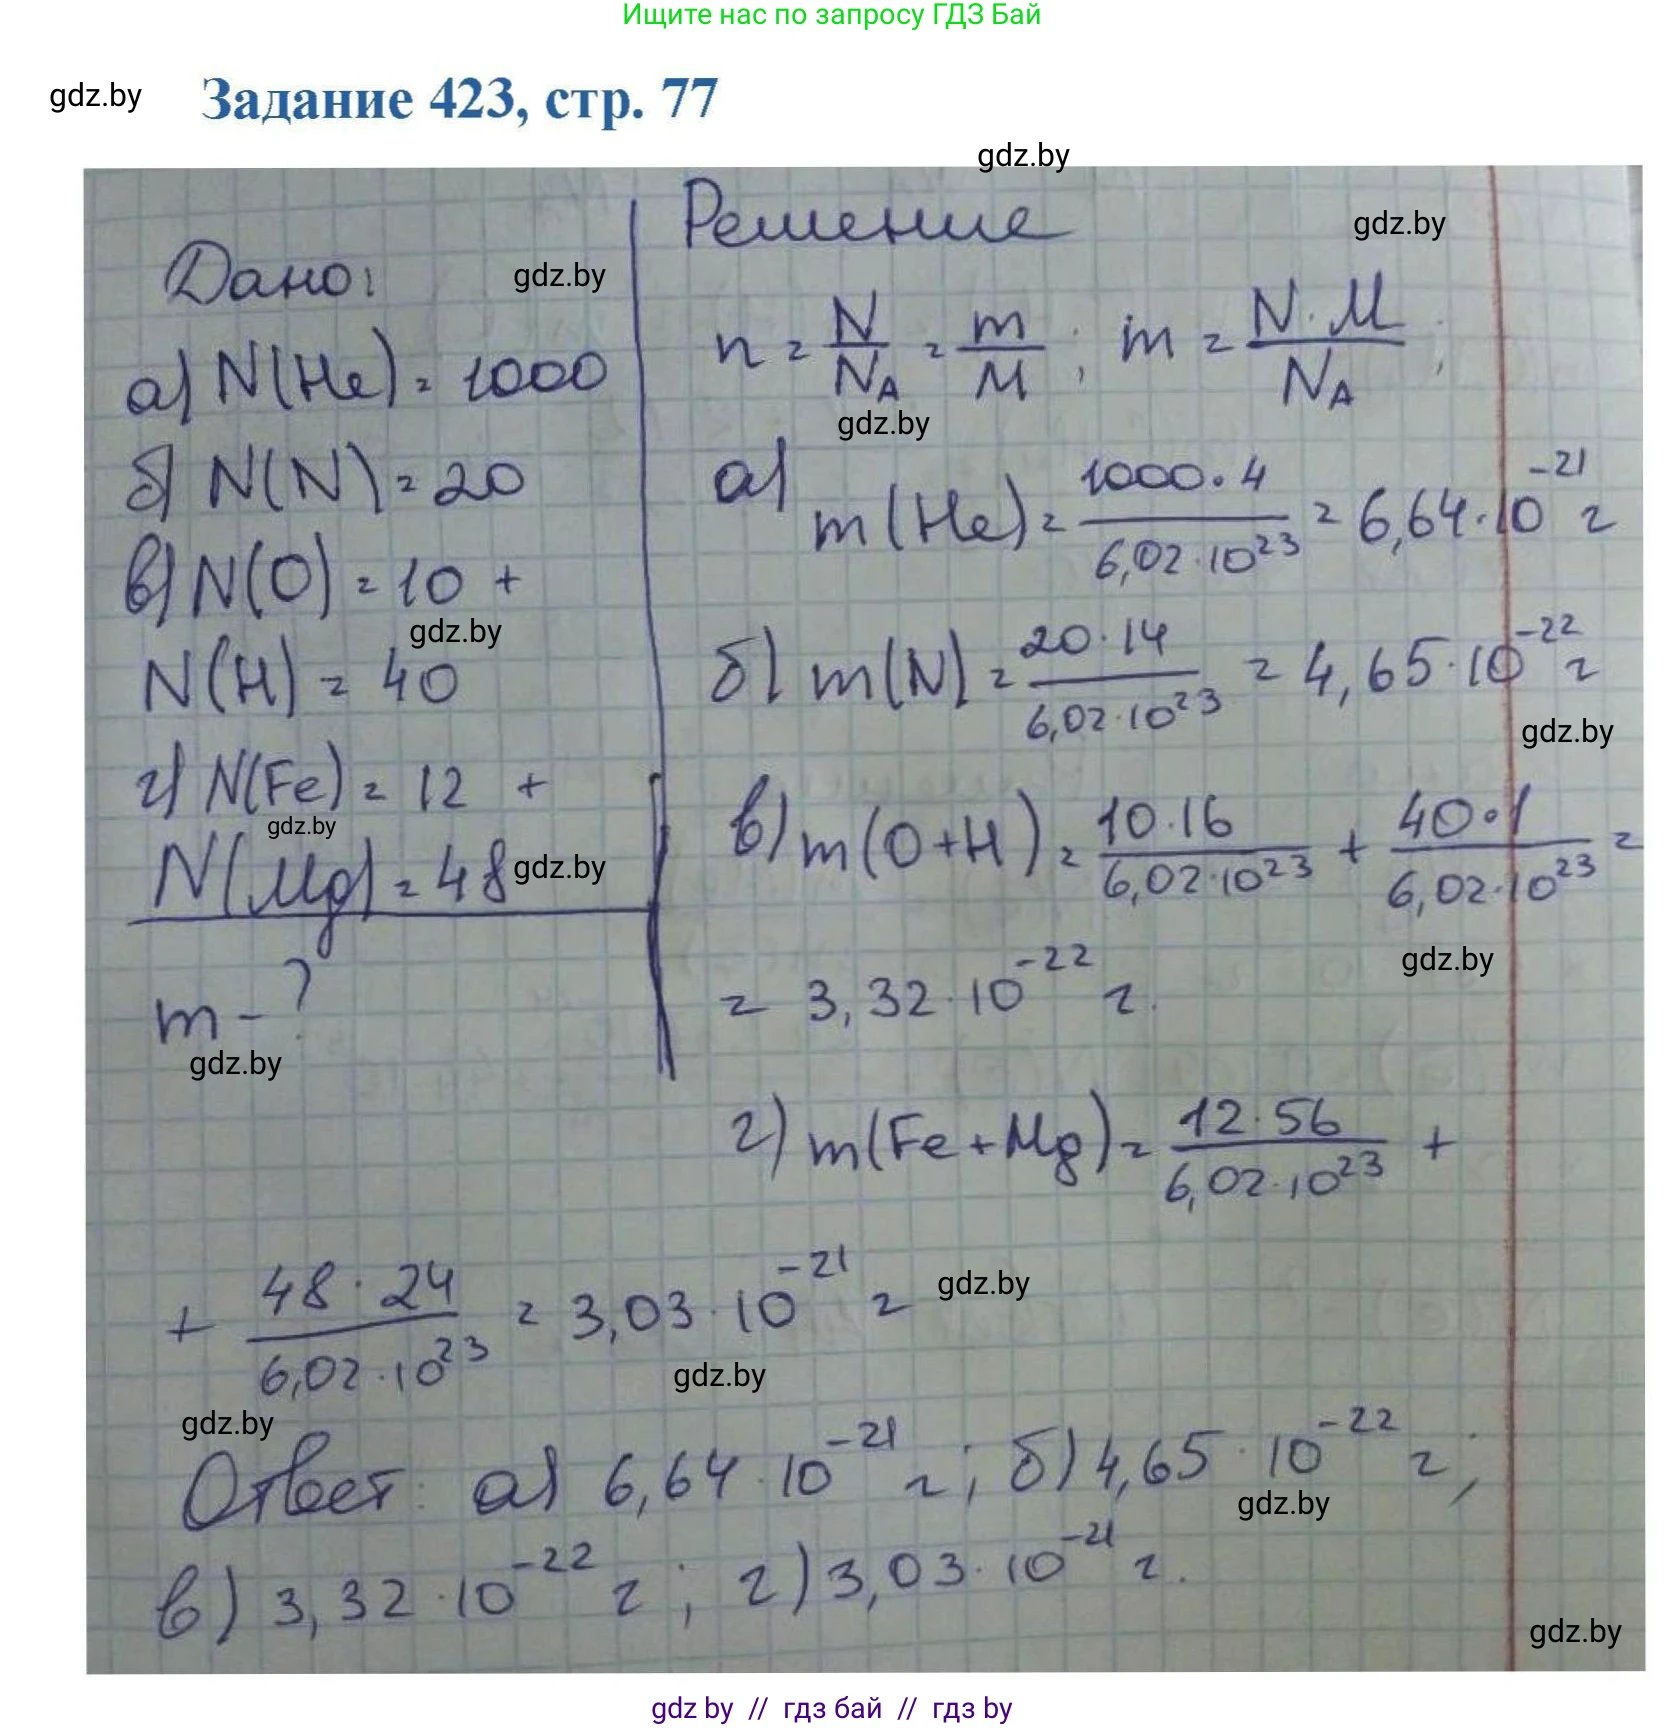 Ищите нас по запросу ГДЗ Бай
gdz.by
Задание 423, стр. 77
gdz.by
Решение
gdz.by
Дано:
gdz.by
n = N/N_A = m/M ; m = N · M/N_A ;
а) N(He) = 1000
gdz.by
б) N(N) = 20
а) m(He) = 1000 · 4/6,02 · 10^23 = 6,64 · 10^-21 г
в) N(O) = 10 +
gdz.by
N(H) = 40
б) m(N) = 20 · 14/6,02 · 10^23 = 4,65 · 10^-22 г
gdz.by
г) N(Fe) = 12 +
gdz.by
N(Mg) = 48
gdz.by
в) m(O+H) = 10 · 16/6,02 · 10^23 + 40 · 1/6,02 · 10^23 =
gdz.by
= 3,32 · 10^-22 г.
m - ?
gdz.by
г) m(Fe+Mg) = 12 · 56/6,02 · 10^23 +
+ 48 · 24/6,02 · 10^23 = 3,03 · 10^-21 г
gdz.by
gdz.by
gdz.by
Ответ: а) 6,64 · 10^-21 г; б) 4,65 · 10^-22 г;
gdz.by
в) 3,32 · 10^-22 г; г) 3,03 · 10^-21 г.
gdz.by
gdz by // гдз бай // гдз by